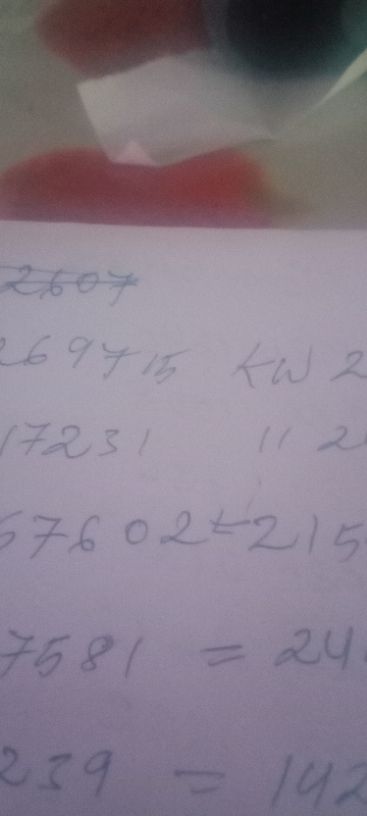 2607
269715 KW 2
17231 11 2
67602=215
7581 = 24
239 = 142